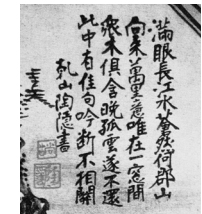 滿眼長江水蒼然何郡山
向來萬里意唯在一窓間
衆木俱含晚孤雲遂不還
此中有佳句吟斷不相關
乾山陶隱書